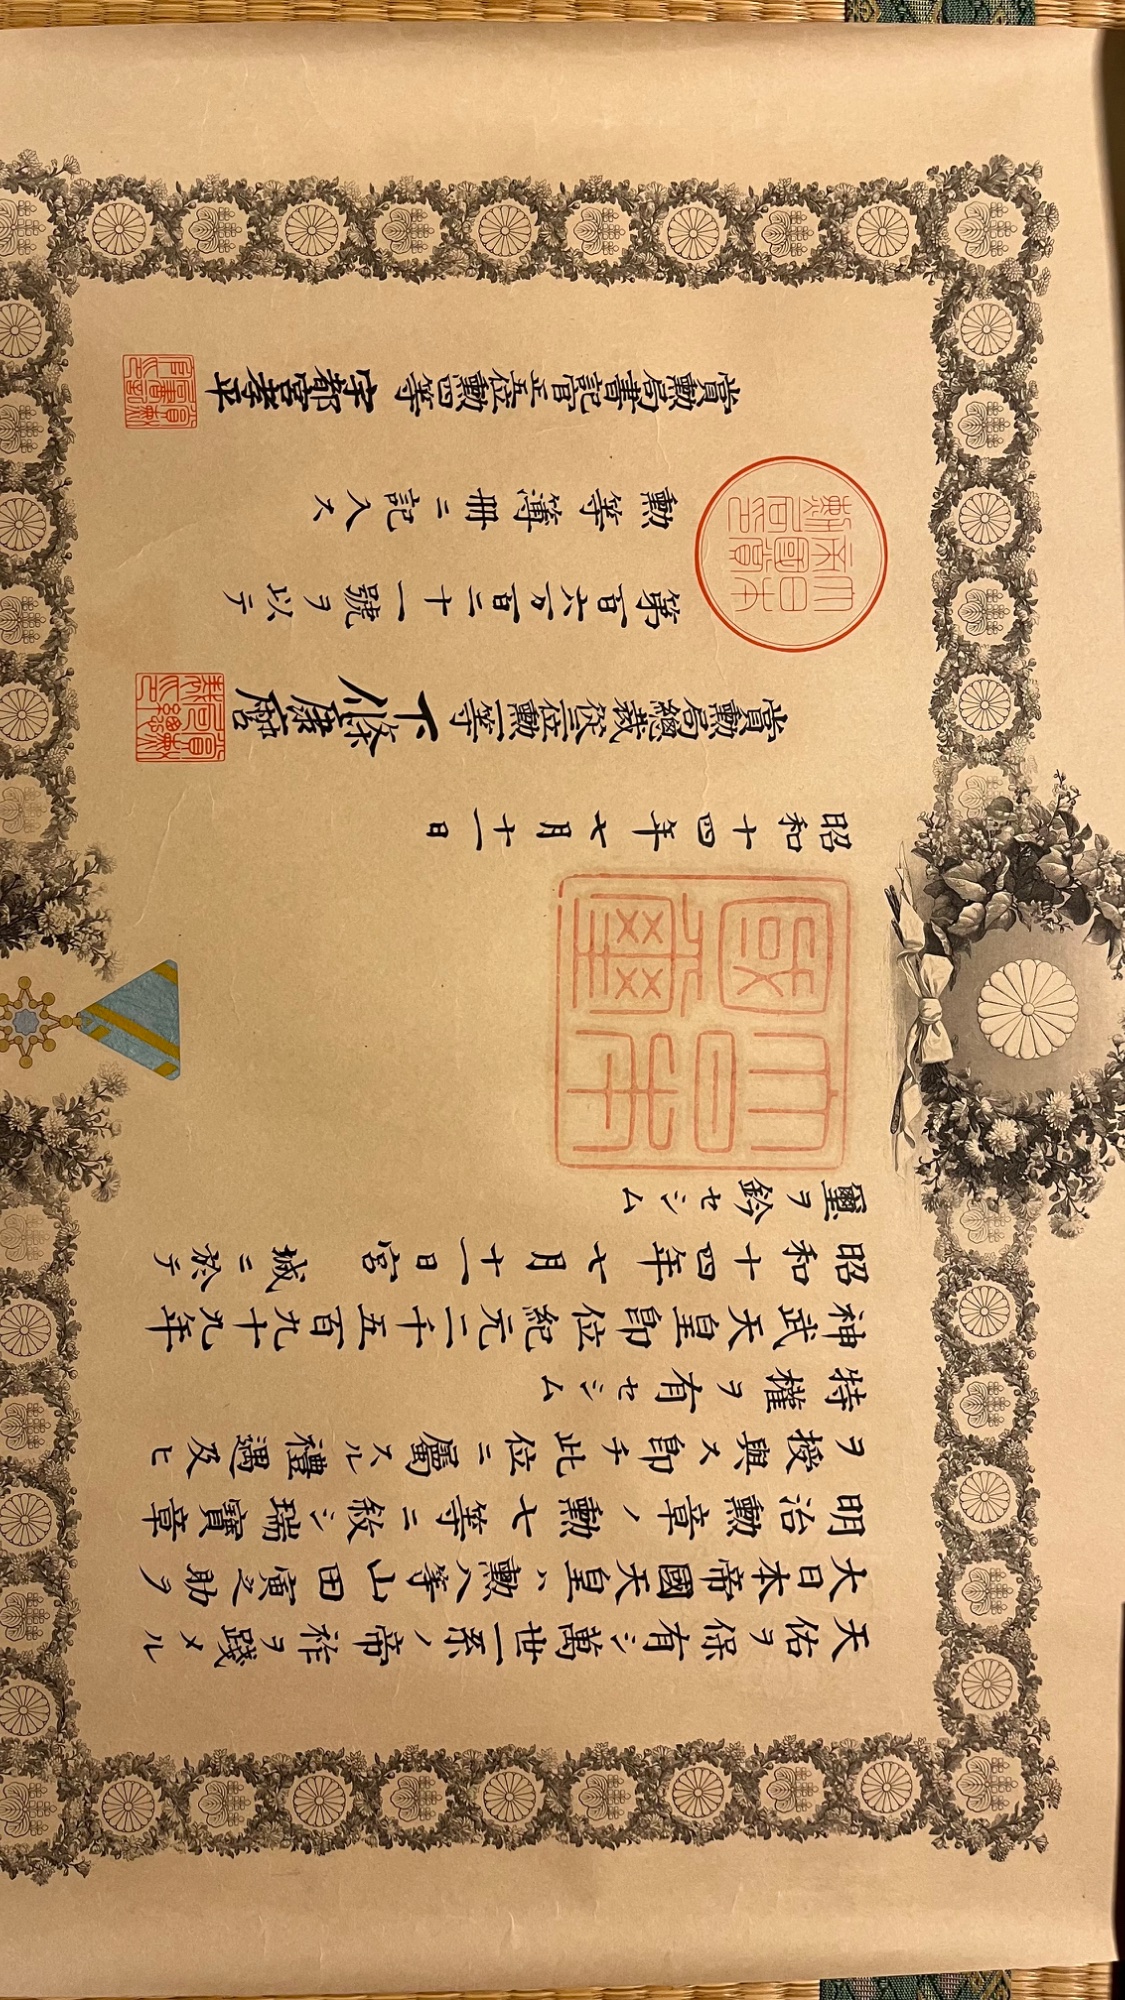 天佑ヲ保有シ萬世一系ノ帝祚ヲ踐メル
大日本帝國天皇ハ勲八等山田寅之助ヲ
明治勲章ノ勲七等ニ敘シ瑞寶章
ヲ授與ス卽チ此位ニ屬スル禮遇及ヒ
特權ヲ有セシム
神武天皇卽位紀元二千五百九十九年
昭和十四年七月十一日宮城ニ於テ
璽ヲ鈐セシム
大日本國璽
昭和十四年七月十一日
賞勲局總裁從三位勲一等下條康麿
第百六万百二十一號ヲ以テ
勲等簿冊ニ記入ス
大日本帝國賞勲局之印
賞勲局書記官正五位勲四等宇都宮孝平